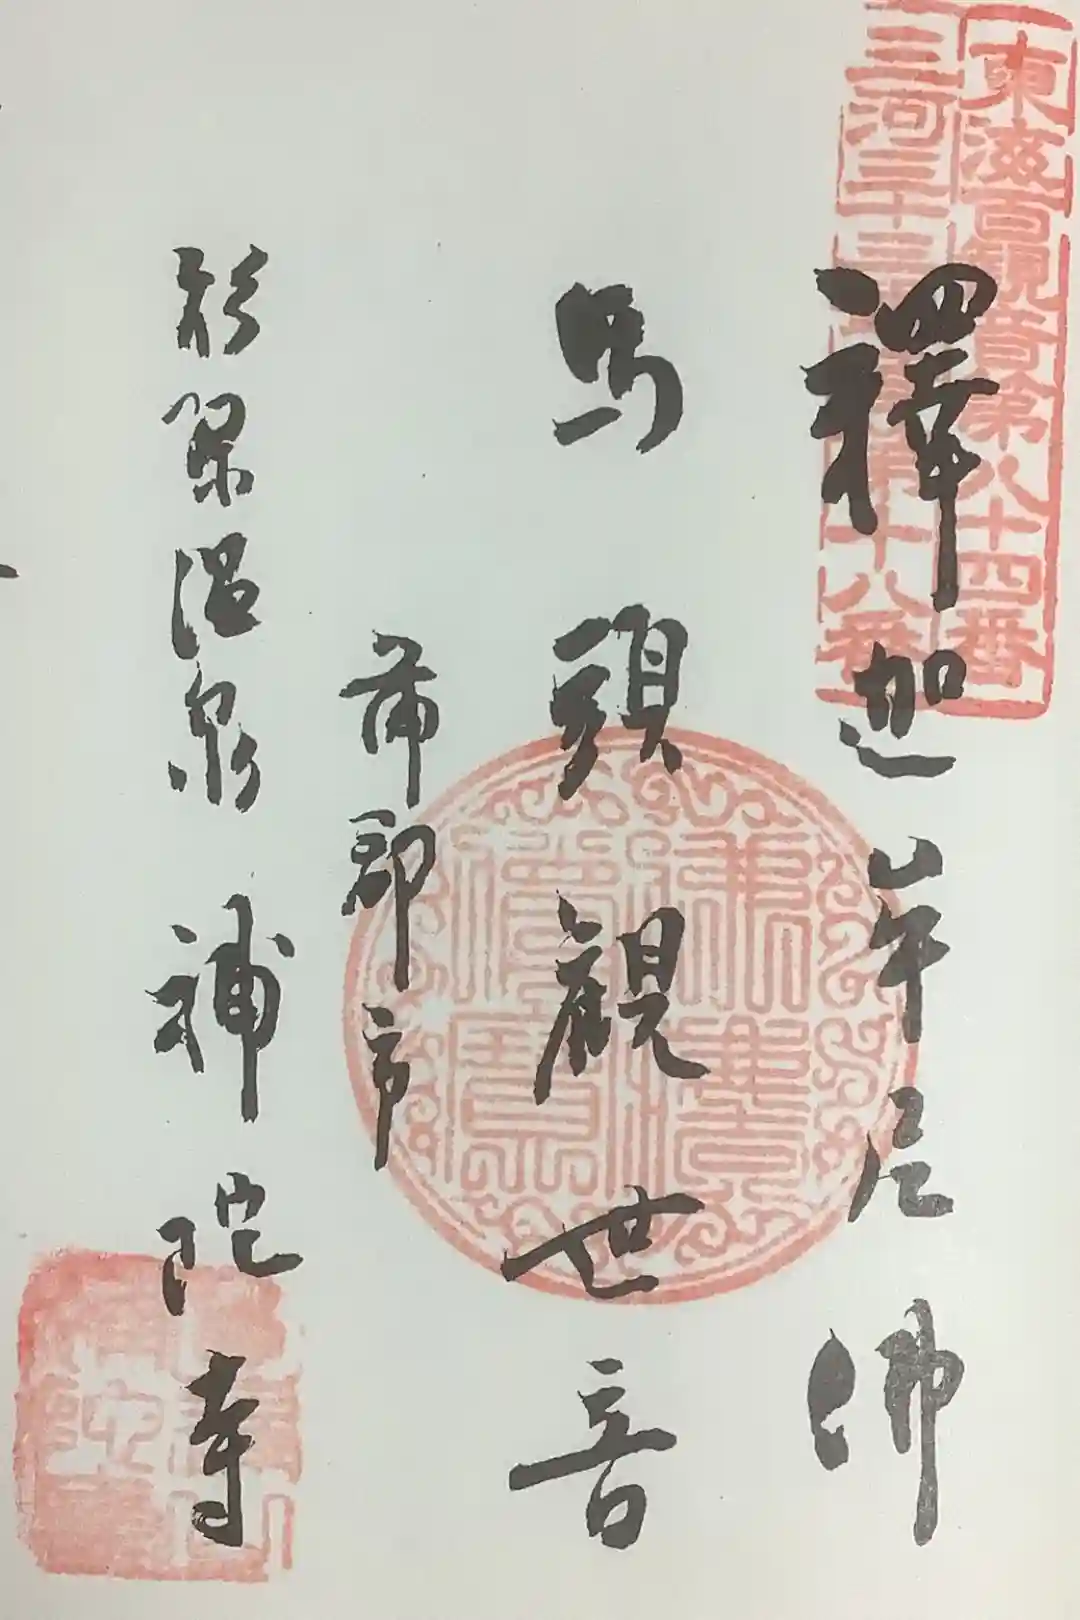 東海百観音第八十四番
三河三十三
第十八番
釋迦牟尼佛
馬頭観世音
蒲郡市
形原温泉 補陀寺